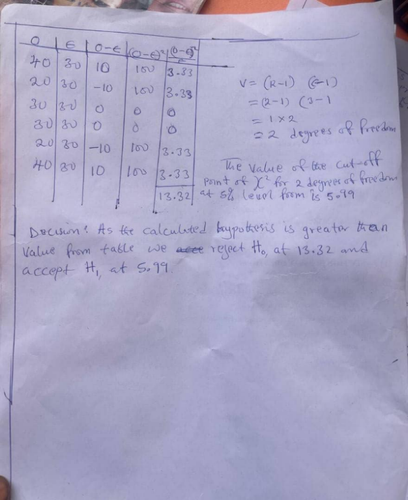 O E O-E (O-E)² (O-E)²/E
40 30 10 100 3.33
20 30 -10 100 3.33
30 30 0 0 0
30 30 0 0 0
20 30 -10 100 3.33
40 30 10 100 3.33
13.32
V = (R-1) (C-1)
= (2-1) (3-1
= 1 x 2
= 2 degrees of freedom
The value of the cut-off
point of X² for 2 degrees of freedom
at 5% level form is 5.99
Decision: As the calculated hypothesis is greater than
value from table we reject H₀ at 13.32 and
accept H₁ at 5.99